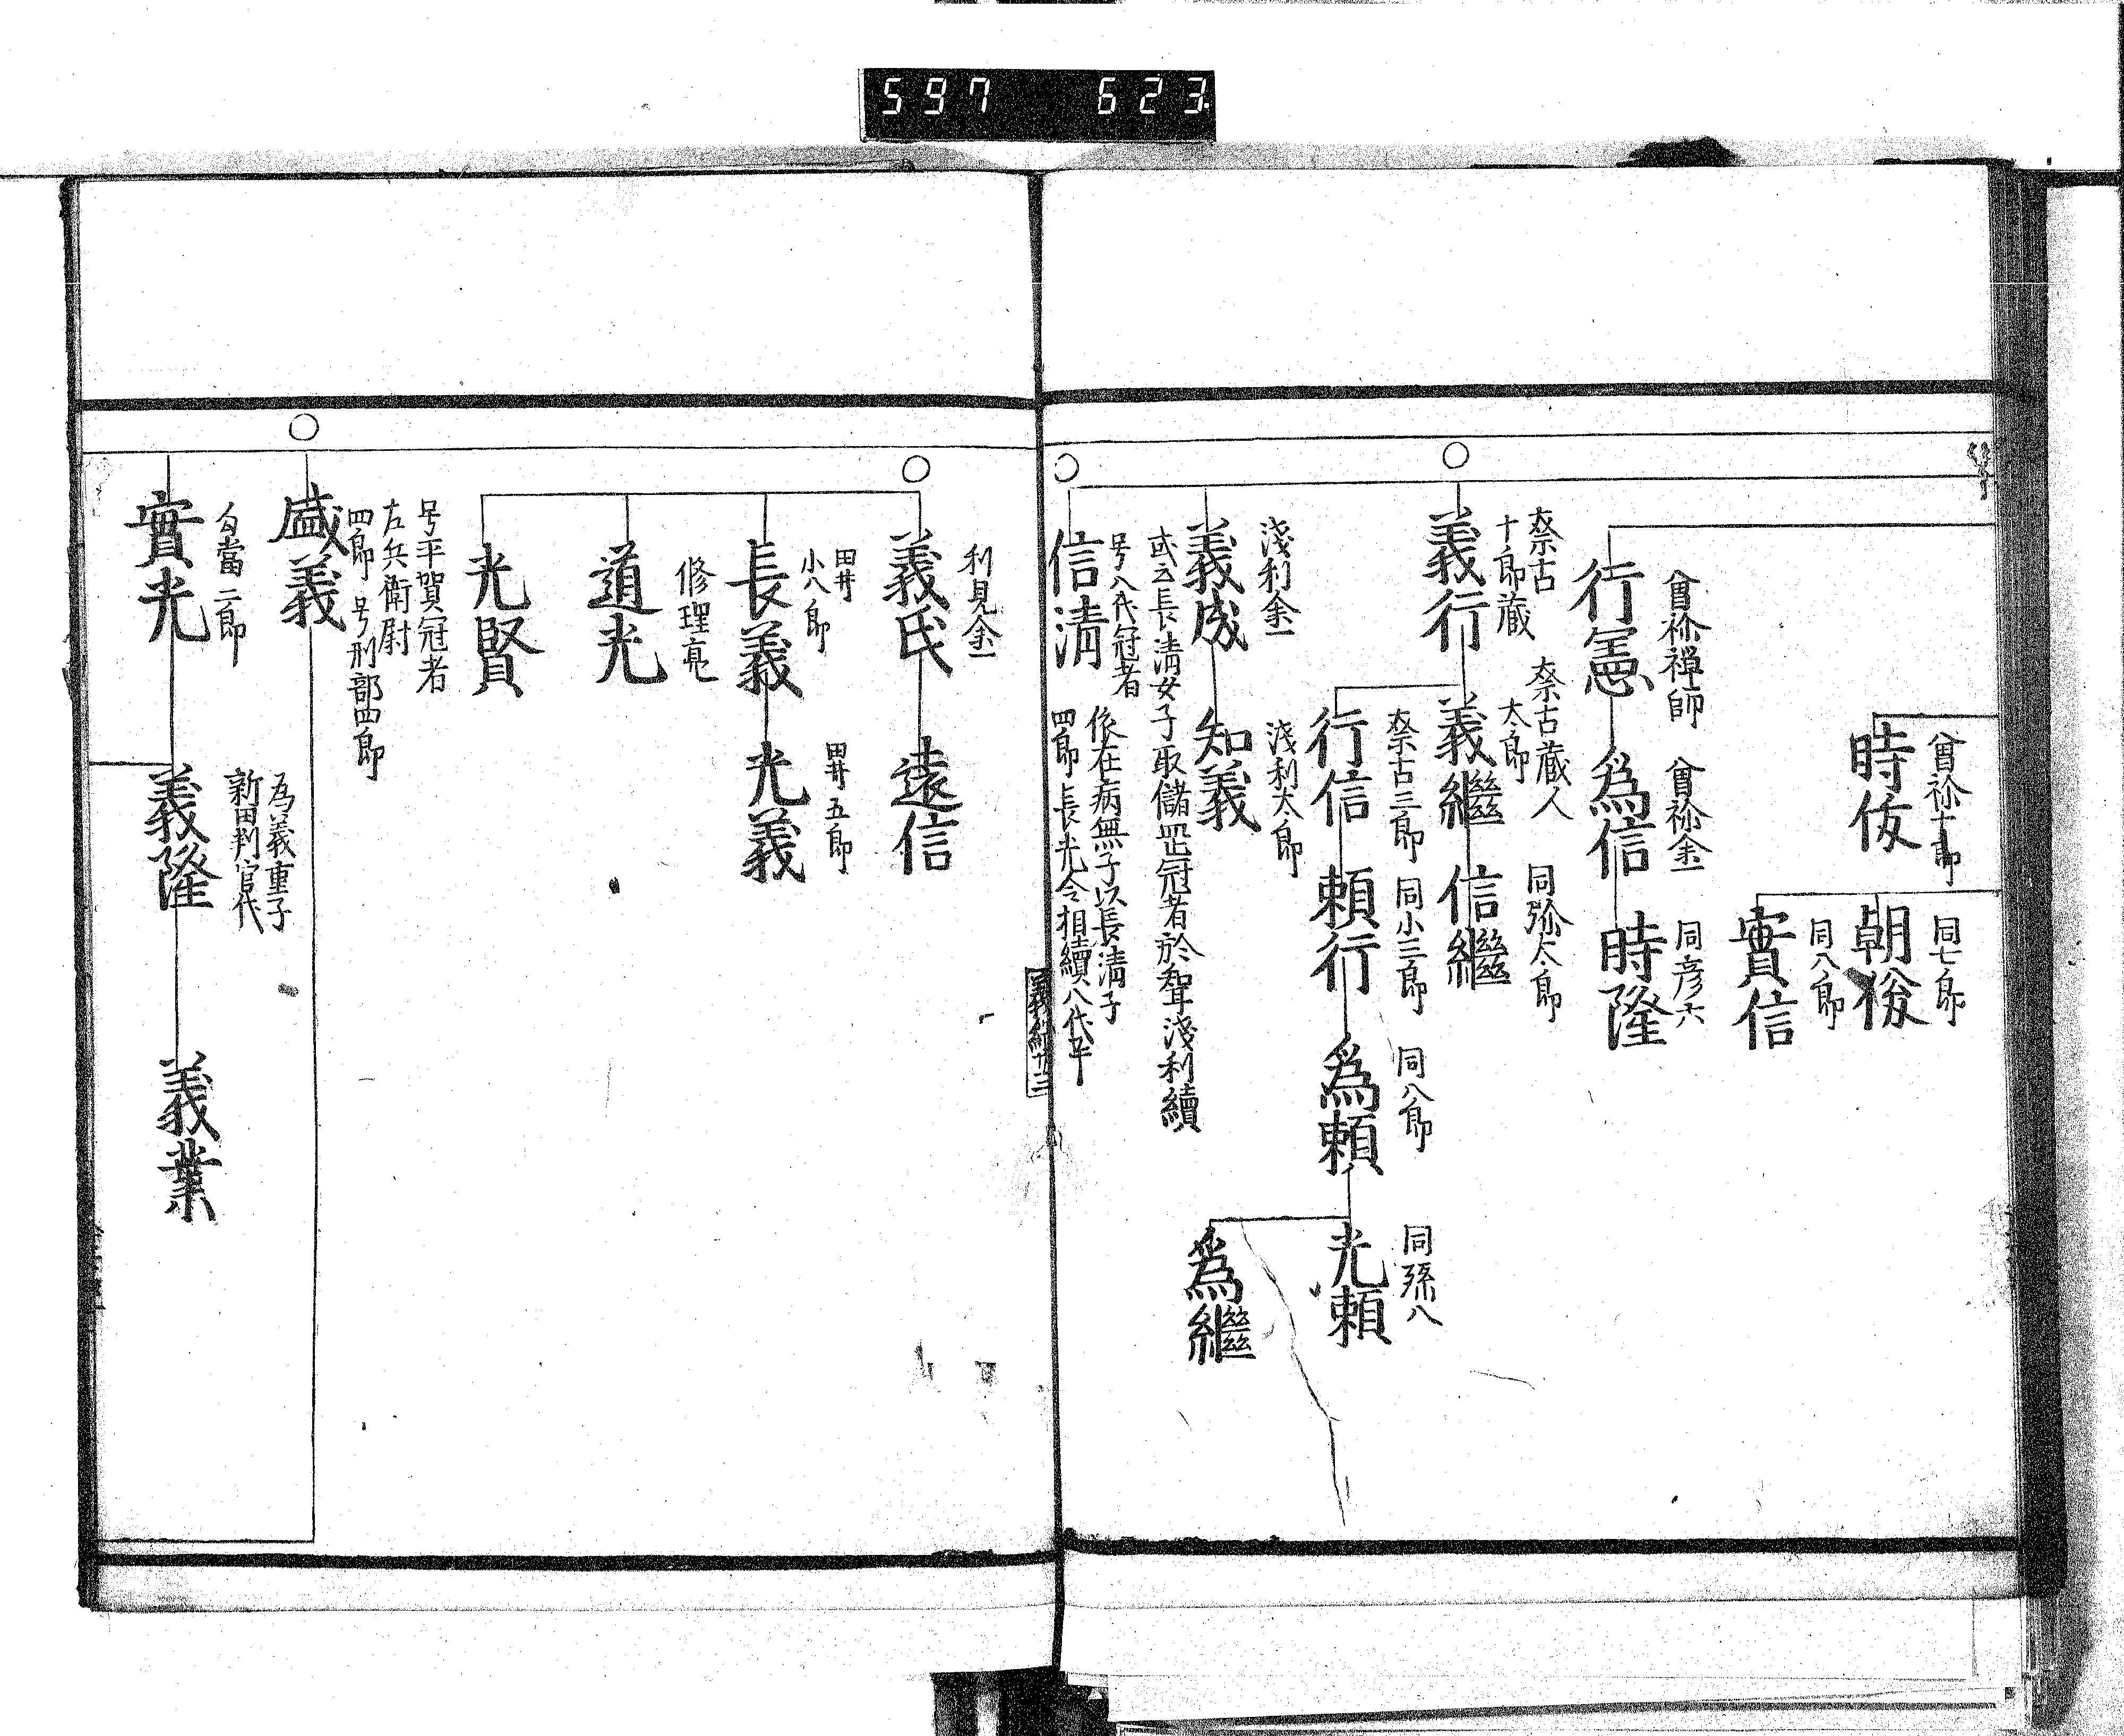 597 623
曽祢十郎
時伩
同七郎
朝俊
同八郎
實信
曽祢禅師
行憲
曽祢余一
爲信
同彦六
時隆
奈古
十郎蔵人
義行
奈古蔵人
太郎
義繼
同弥太郎
信繼
奈古三郎
行信
同小三郎
頼行
同八郎
爲頼
同孫八
光頼
爲繼
淺利余一
義成
淺利太郎
知義
或云長清女子取儲冠者於聟淺利續
号八代冠者
信清
依在病無子以長清子
四郎長光令相續八代
利見余一
義氏
遠信
田井
小八郎
長義
田井五郎
光義
修理亮
道光
光賢
号平賀冠者
左兵衛尉
四郎 号刑部四郎
盛義
勾當二郎
實光
為義重子
新田判官代
義隆
義業